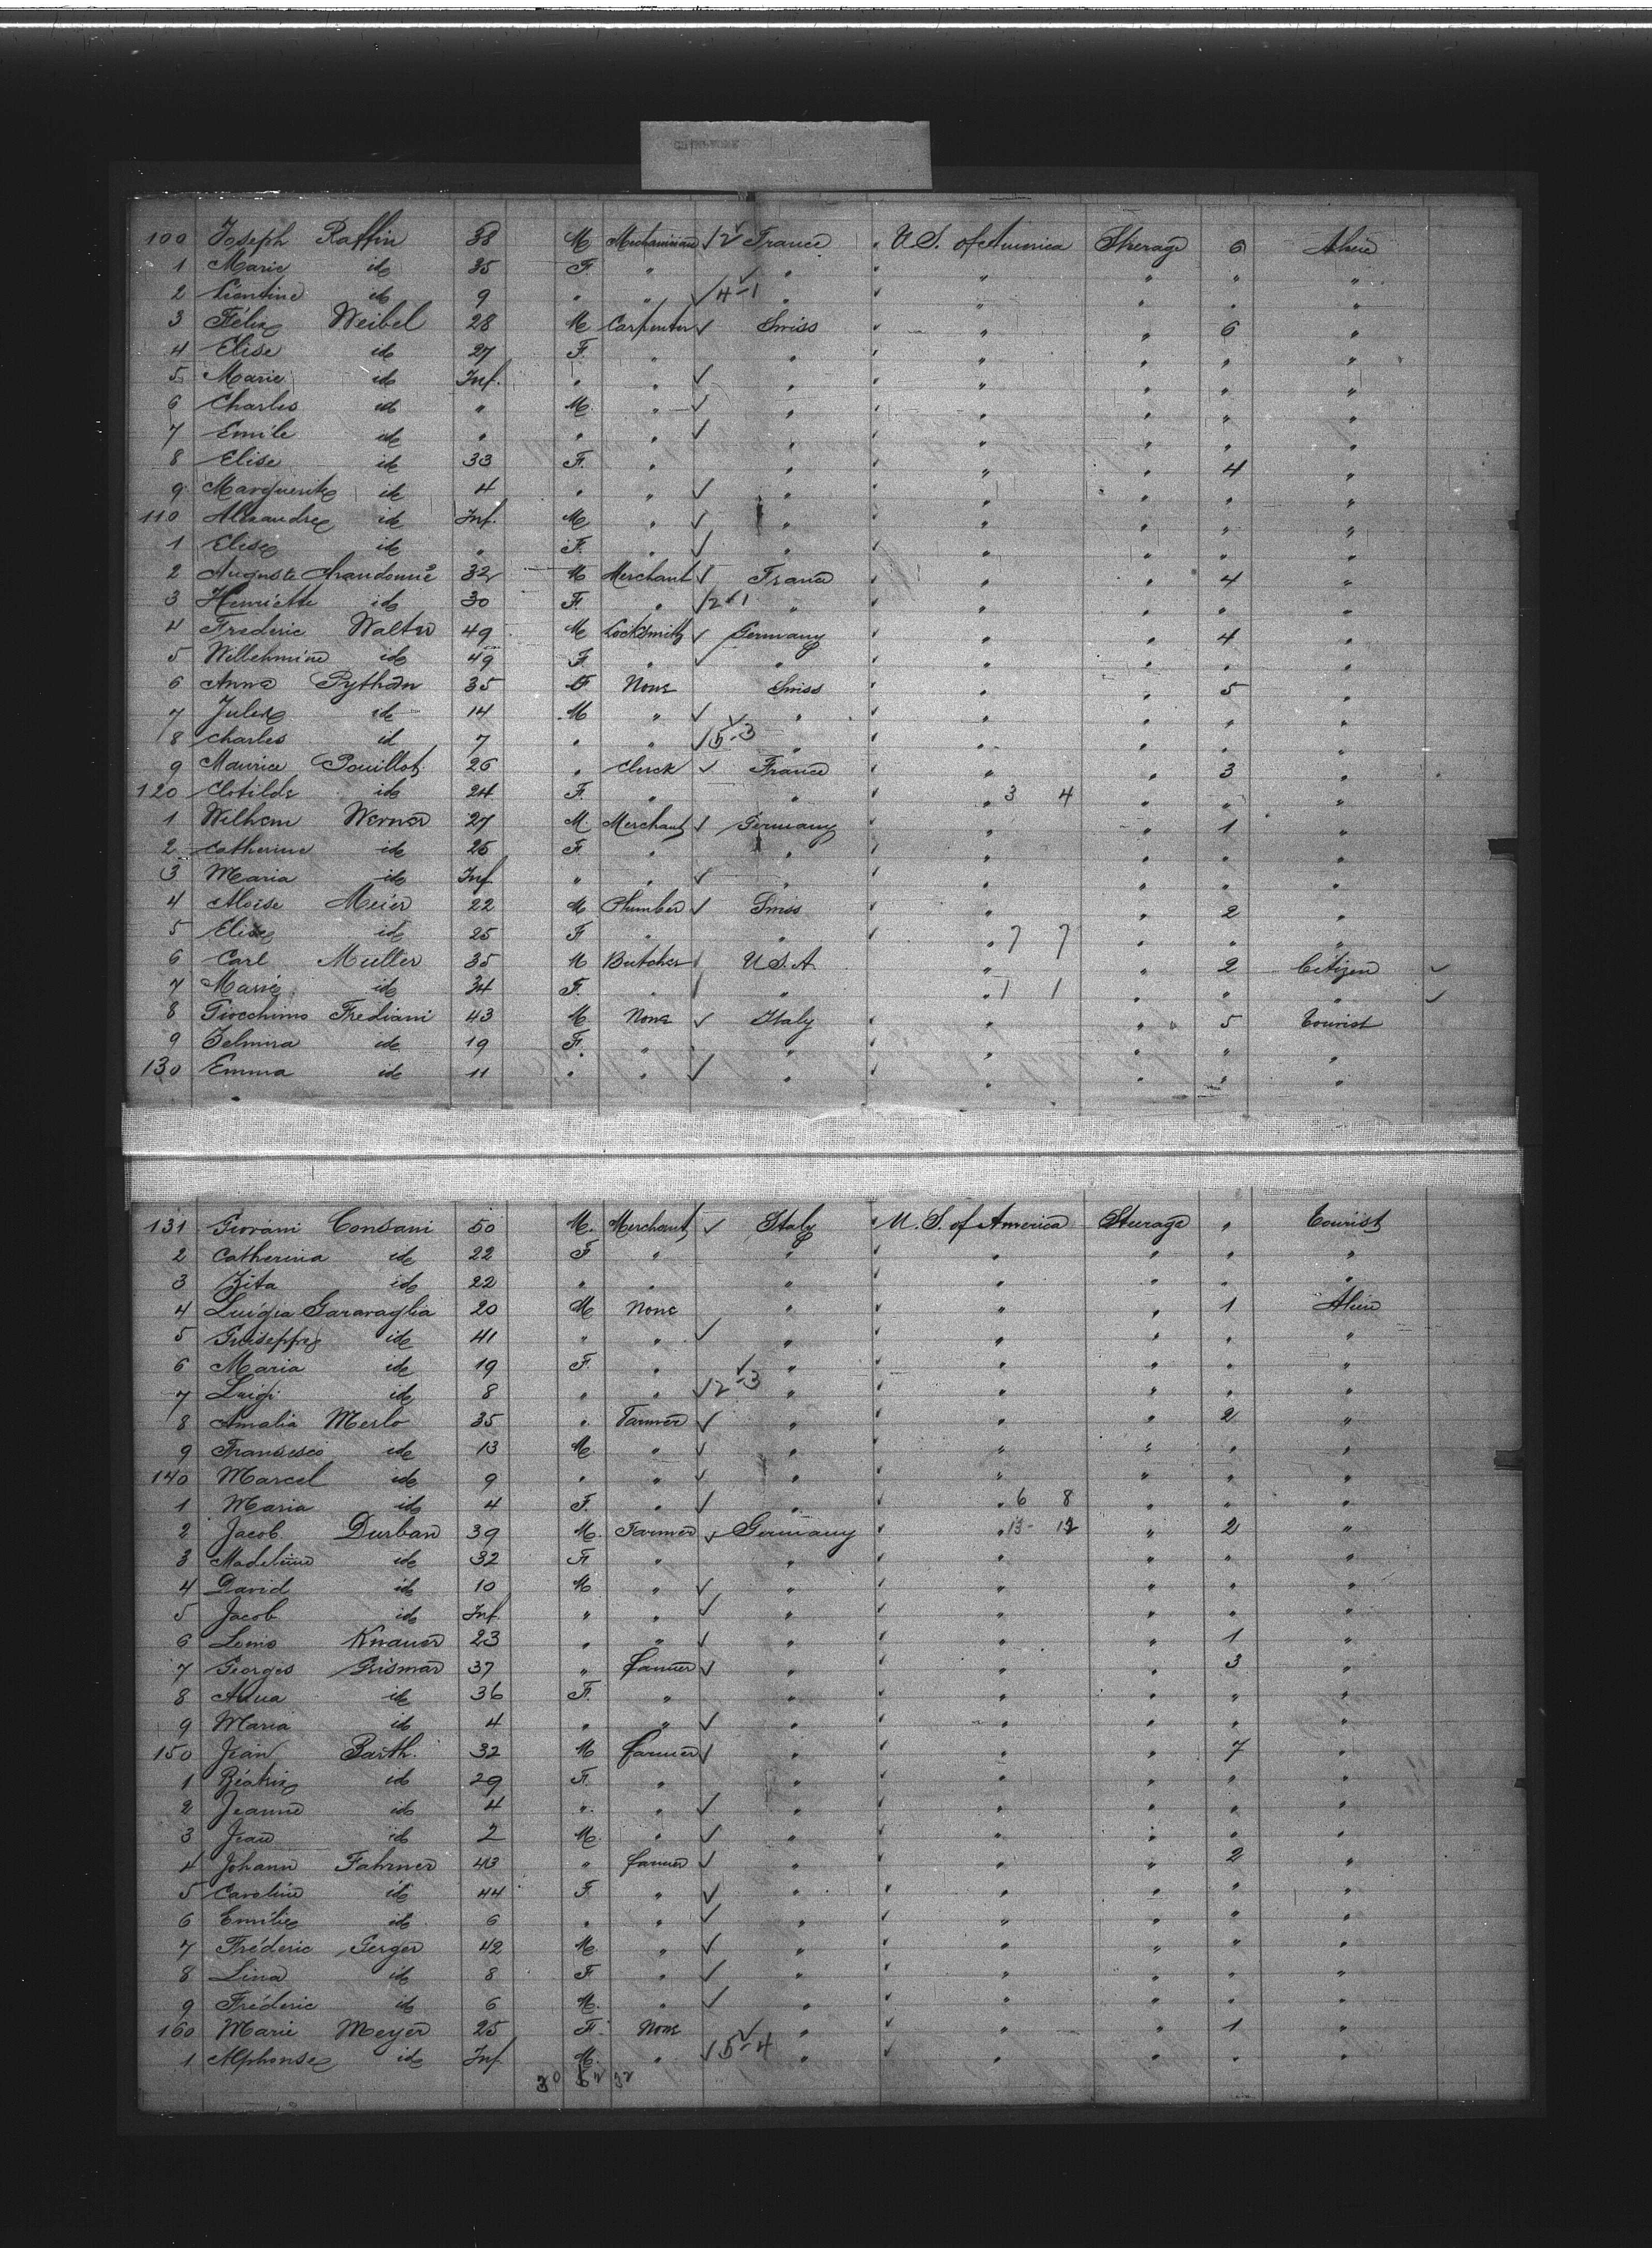 100 Joseph Raffin 38 M Mechanician 2 France U.S. of America Sterage 6 Alien
1 Marie id 35 F. " " " " " "
2 Léontine id 9 " " 4-1 " " " " "
3 Félix Weibel 28 M Carpenter Swiss " " 6 "
4 Elise id 27 F. " " " " " "
5 Marie id Inf. " " " " " " "
6 Charles id " M. " " " " " "
7 Emile id " " " " " " " "
8 Elise id 33 F. " " " " 4 "
9 Marguerite id 4 " " " " " " "
110 Alexandre id Inf. M " " " " " "
1 Elise id " F. " " " " " "
2 Auguste 32 M Merchant France " " 4 "
3 Henriette id 30 F. " 2-1 " " " " "
4 Frederic Walter 49 M Locksmith Germany " " 4 "
5 Willehmine id 49 F. " " " " " "
6 Anna Python 35 F None Swiss " " 5 "
7 Jules id 14 M " " " " " "
8 Charles id 7 " " 5-3 " " " " "
9 Maurice Pouillot 26 " Clerck France " " 3 "
120 Clotilde id 24 F. " " " 3 4 " " "
1 Wilhem Werner 27 M. Merchant Germany " " 1 "
2 Catherine id 25 F. " " " " " "
3 Maria id Inf " " " " " " "
4 Aloise Meier 22 M Plumber Swiss " " 2 "
5 Elise id 25 F " " " 7 7 " " "
6 Carl Muller 35 M Butcher U.S.A. " " 2 Citizen
7 Marie id 34 F. " " " 1 1 " " "
8 Giocchimo Frediani 43 M. None Italy " " 5 Tourist
9 Zelmira id 19 F. " " " " " "
130 Emma id 11 " " " " " " "
131 Giovani Consani 50 M. Merchant Italy U.S. of America Sterage " Tourist
2 Catherina id 22 F " " " " " "
3 Zita id 22 " " " " " " "
4 Luigia Garavaglia 20 M None " " " 1 Alien
5 Guiseppe id 41 " " " " " " "
6 Maria id 19 F. " " " " " "
7 Luigi id 8 " " 2-3 " " " " "
8 Amalia Merlo 35 " Farmer " " " 2 "
9 Francesco id 13 M " " " " " "
140 Marcel id 9 " " " " " " "
1 Maria id 4 F. " " " 6 8 " " "
2 Jacob Durban 39 M. Farmer Germany " 13- 12 " 2 "
3 Madeleine id 32 F. " " " " " "
4 David id 10 M " " " " " "
5 Jacob id Inf. " " " " " " "
6 Louis Knauer 23 " " " " " 1 "
7 Georges Grismar 37 " farmer " " " 3 "
8 Anna id 36 F. " " " " " "
9 Maria id 4 " " " " " " "
150 Jean Barth. 32 M farmer " " " 7 "
1 Béatrix id 29 F. " " " " " "
2 Jeanne id 4 " " " " " " "
3 Jean id 2 M. " " " " " "
4 Johann Fahrner 43 " farmer " " " 2 "
5 Caroline id 44 F. " " " " " "
6 Emilie id 6 " " " " " " "
7 Fréderic Gerger 42 M. " " " " " "
8 Lina id 8 F " " " " " "
9 Fréderic id 6 M. " " " " " "
160 Marie Meyer 25 F. None " " " 1 "
1 Alphonse id Inf. M. " 5-4 " " " " "